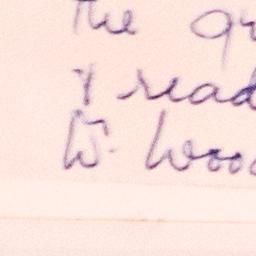 The gr
I read
W. Wood